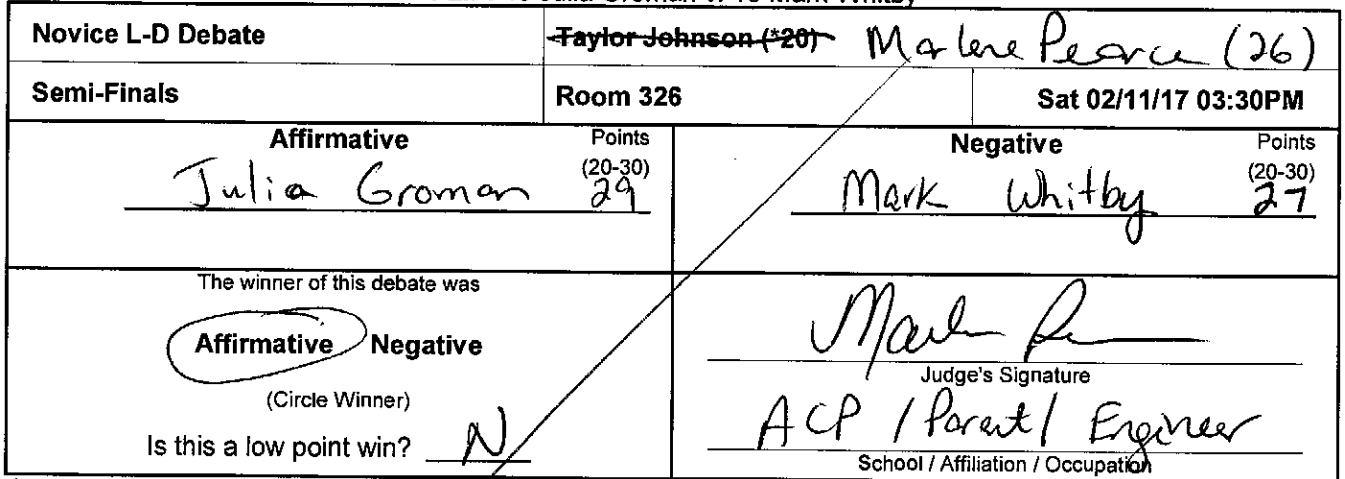 Novice L-D Debate
Taylor Johnson (*20) Marlene Pearce (26)
Semi-Finals Room 326 Sat 02/11/17 03:30PM
Affirmative Points
(20-30)
Julia Groman 29
Negative Points
(20-30)
Mark Whitby 27
The winner of this debate was
Affirmative Negative
(Circle Winner)
Is this a low point win? N
Judge's Signature
ACP / Parent / Engineer
School / Affiliation / Occupation